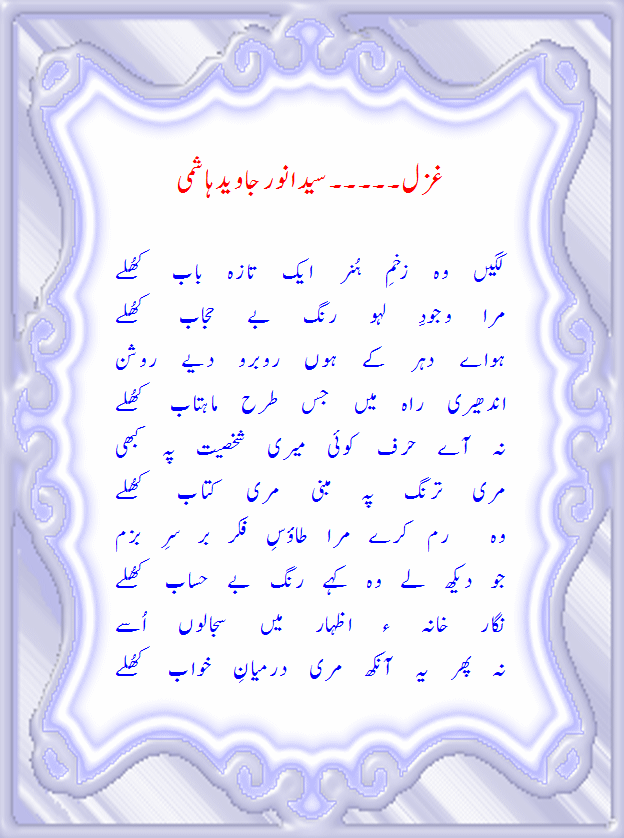 غزل۔۔۔۔۔سیدانور جاوید ہاشمی
لگیں وہ زخمِ ہُنر ایک تازہ باب کھُلے
مرا وجودِ لہو رنگ بے حجاب کھُلے
ہواے دہر کے ہوں روبرو دیے روشن
اندھیری راہ میں جس طرح ماہتاب کھُلے
نہ آے حرف کوئی میری شخصیت پہ کبھی
مری ترنگ پہ مبنی مری کتاب کھُلے
وہ رم کرے مرا طاؤسِ فکر بر سرِ بزم
جو دیکھ لے وہ کہے رنگ بے حساب کھُلے
نگار خانہ ء اظہار میں سجالوں اُسے
نہ پھر یہ آنکھ مری درمیانِ خواب کھُلے